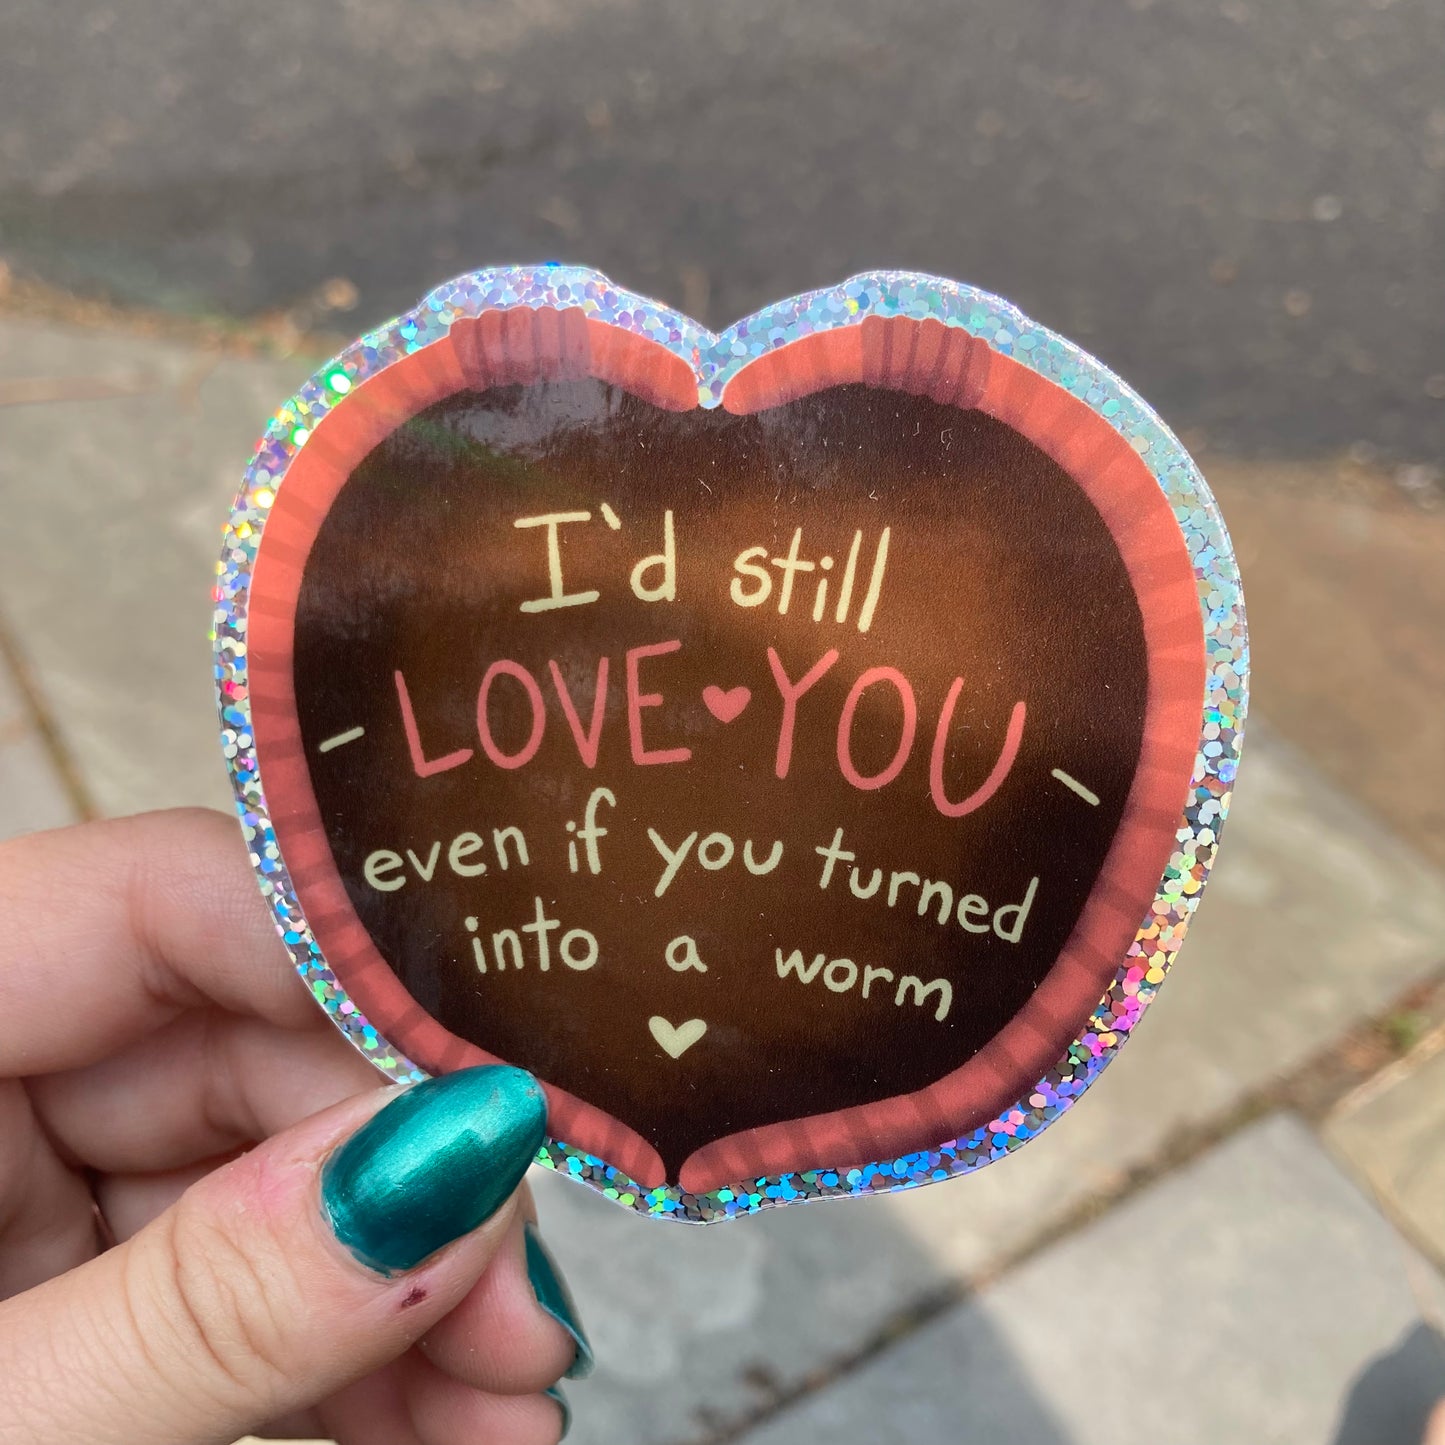 I'd still
LOVE♥YOU
even if you turned
into a worm